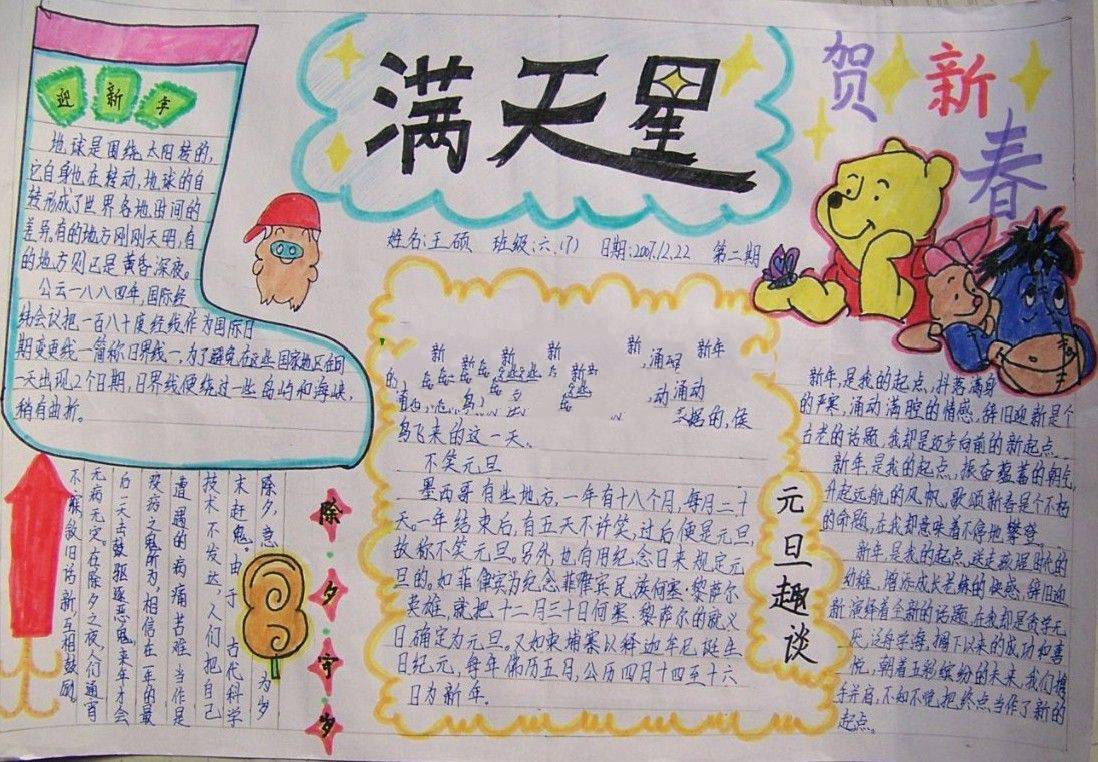 满天星
贺新春
姓名:王硕 班级:六.(7) 日期:2007.12.22 第二期
迎新年
地球是围绕太阳转的,
它自身也在转动,地球的自
转形成了世界各地时间的
差异。有的地方刚刚天明,有
的地方则已是黄昏深夜。
公元一八八四年,国际经
线会议把一百八十度经线作为国际日
期变更线一简称日界线一,为了避免在这些国家地区在同
一天出现2个日期,日界线便绕过一些岛屿和海峡,
稍有曲折。
除夕守岁
除夕,意 为岁
末赶鬼。由于 古代科学
技术不发达,人们把自己
遭遇的病痛苦难当作是
疫疠之鬼所为,相信在一年的最
后一天击鼓驱逐恶鬼,来年才会
无病无灾。在除夕之夜,人们通宵
不 叙旧话新互相鼓励。
元旦趣谈
新 新 新 新 ,涌 新年
的 动涌动
的,候
鸟飞来的这一天。
不笑元旦
墨西哥有些地方,一年有十八个月,每月二十
天。一年结束后,有五天不许笑,过后便是元旦,
故称不笑元旦。另外,也有用纪念日来规定元
旦的。如菲律宾为纪念菲律宾民族何塞·黎萨尔
英雄,就把十二月三十日何塞·黎萨尔的就义
日确定为元旦。又如柬埔寨以释迦牟尼诞生
日纪元,每年佛历五月,公历四月十四至十六
日为新年。
新年,是我的起点,抖落满身
的严寒,涌动满腔的情感,辞旧迎新是个
古老的话题,我却是迈步向前的新起点。
新年,是我的起点,振奋蕴蓄的朝气,
升起远航的风帆,歌颂新春是个不朽
的命题,在我却意味着不停地攀登。
新年,是我的起点,送走 时代的
幼稚,增添成长老练的 ,辞旧迎
新演绎着全新的话题,在我却是学无
,泛舟学海,捎下以来的成功和喜
悦,朝着五彩缤纷的未来,我们携
手并肩,不知不觉,把终点当作了新的
起点。